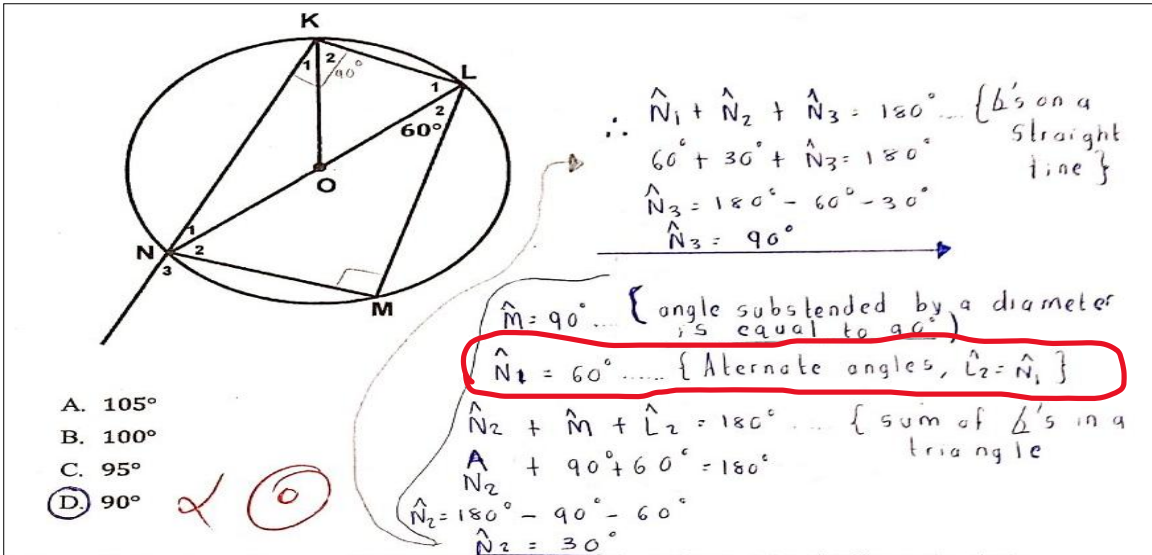 K
1 2
90°
L
1
2
60°
O
N
1
2
3
M
A. 105°
B. 100°
C. 95°
D. 90°
∴ N̂₁ + N̂₂ + N̂₃ = 180° .... {∠'s on a
straight
line}
60° + 30° + N̂₃ = 180°
N̂₃ = 180° - 60° - 30°
N̂₃ = 90°
M̂ = 90° .... {angle substended by a diameter
is equal to 90°)
N̂₁ = 60° ...... {Aternate angles, L̂₂ = N̂₁}
N̂₂ + M̂ + L̂₂ = 180° .... {sum of ∠'s in a
triangle
N̂₂ + 90° + 60° = 180°
N̂₂ = 180° - 90° - 60°
N̂₂ = 30°